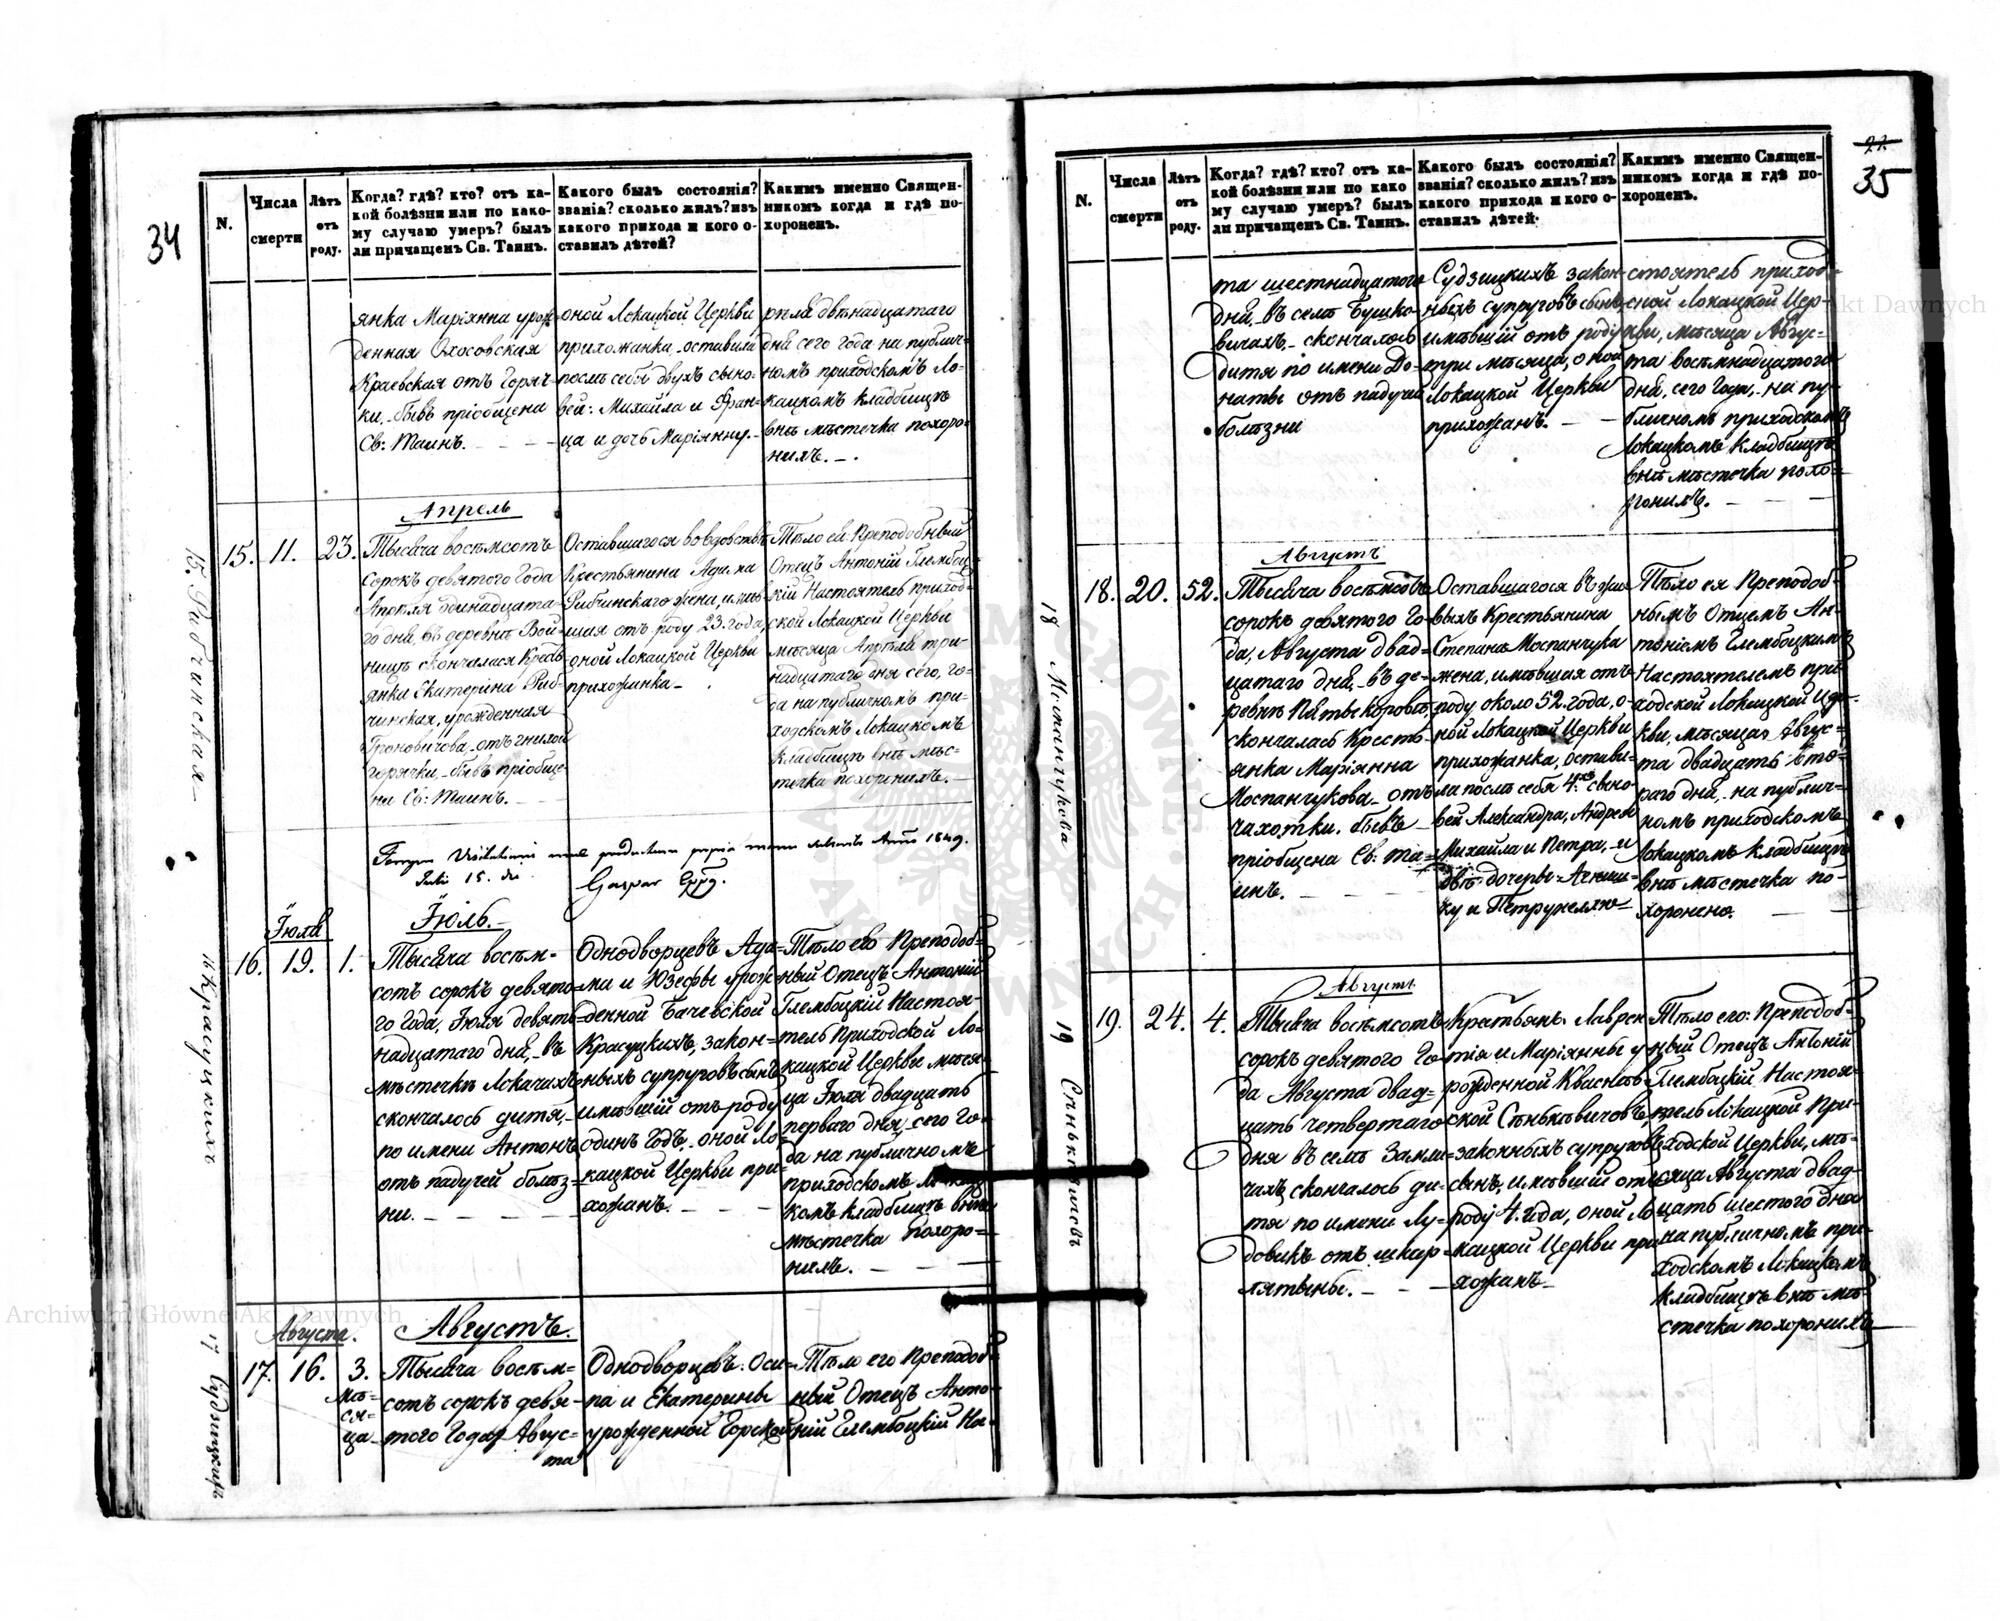 34
N.
Числа смерти
Лѣтъ отъ роду.
Когда? гдѣ? кто? отъ ка-
кой болѣзни или по како-
му случаю умеръ? былъ
ли причащенъ Св. Таинъ.
Какого былъ состоянія?
званія? сколько жилъ? изъ
какого прихода и кого о-
ставилъ дѣтей?
Какимъ именно Священ-
никомъ когда и гдѣ по-
хороненъ.
янка Маріянна урож
денная
Краевская отъ Горяч-
ки, бывъ пріобщена
Св: Таинъ.
оной Локацкой Церкви
прихожанка, оставила
послѣ себя двухъ сыно-
вей: Михайла и Фран-
ца и дочь Маріянну.
рѣля двѣнадцатаго
дня сего года на публич-
номъ приходскомъ Ло-
кацкомъ кладбищѣ
внѣ мѣстечка похоро-
нилъ.
Апрель
15. 11. 23.
Тысяча восѣмсотъ
сорокъ девятого Года
Апрѣля одинадцата-
го дня, въ деревнѣ Вой-
ницѣ скончалася Кресть
янка Екатерина Риб-
чинская, урожденная
Грановичова, отъ гнилой
горячки, бывъ пріобще-
на Св: Таинъ.
Оставшагося во вдовствѣ
Крестьянина Адама
Рибчинскаго жена, имѣв-
шая отъ роду 23. года,
оной Локацкой Церкви
прихожанка
Тѣло ея: Преподобный
Отецъ Антоній Глембоц-
кій Настоятель приход-
ской Локацкой Церкви
мѣсяца Апрѣля три-
надцатаго дня сего, го-
да на публичномъ при-
ходскомъ Локацкомъ
кладбищѣ внѣ мѣс-
течка похоронилъ.
15. Рибчинская
Anno 1849.
Juli 15. di
Gaspar
Іюля
Іюль.
16. 19. 1.
Тысяча восѣм-
сотъ сорокъ девято-
го Года, Іюля девять-
надцатаго дня, въ
мѣстечкѣ Локачахъ
скончалось дитя,
по имени Антонъ
отъ падучей болѣз-
ни.
Однодворцевъ Ада-
ма и Юзефы урож-
денной Бачевской
Красуцкихъ, закон-
ныхъ супруговъ сынъ
имѣвшій отъ роду
одинъ годъ, оной Ло-
кацкой Церкви при-
хожанъ.
Тѣло его Преподоб-
ный Отецъ Антоній
Глембоцкій Настоя-
тель Приходской Ло-
кацкой Церкви мѣся-
ца Іюля двадцать
перваго дня, сего го-
да на публичномъ
приходскомъ Локац-
комъ кладбищѣ внѣ
мѣстечка похоро-
нилъ.
16 Красуцкихъ
Августа.
Августъ.
17. 16. 3.
мѣ-
ся-
ца
Тысяча восѣм-
сотъ сорокъ девя-
того Года, Авгус-
та
Однодворцевъ: Оси-
па и Екатерины
урожденной Горской
Тѣло его Преподоб-
ный Отецъ Анто-
ній Глембоцкій На-
17 Судзицкихъ
35
N.
Числа смерти
Лѣтъ отъ роду.
Когда? гдѣ? кто? отъ ка-
кой болѣзни или по како
му случаю умеръ? былъ
ли причащенъ Св. Таинъ.
Какого былъ состоянія?
званія? сколько жилъ? изъ
какого прихода и кого о-
ставилъ дѣтей.
Какимъ именно Священ-
никомъ когда и гдѣ по-
хороненъ.
та шестнадцатого
дня, въ селѣ Бушко-
вичахъ, скончалось
дитя по имени До-
наты отъ падучей
болѣзни
Судзицкихъ закон-
ныхъ супруговъ сынъ
имѣвшій отъ роду
три мѣсяца, оной
Локацкой Церкви
прихожанъ.
стоятель приход-
ской Локацкой Цер-
кви, мѣсяца Авгус-
та восѣмнадцатаго
дня, сего года, на пу-
бличномъ приходскомъ
Локацкомъ кладбищѣ
внѣ мѣстечка похо-
ронилъ.
Августъ
18. 20. 52.
Тысяча восѣмсотъ
сорокъ девятого Го-
да, Августа двад-
цатаго дня, въ де-
ревнѣ Пятыкоровъ,
скончалась Кресть-
янка Маріянна
Моспанчукова отъ
чахотки, бывъ
пріобщена Св: та-
инъ.
Оставшагося въ жи-
выхъ Крестьянина
Степана Моспанчука
жена, имѣвшая отъ
роду около 52. года, о-
ной Локацкой Церкви
прихожанка, остави-
ла послѣ себя 4хъ сыно-
вей Александра, Андрея
Михайла и Петра, и
двѣ дочеры
ку и Петрунелію
Тѣло ея Преподоб-
нымъ Отцемъ Ан-
тоніемъ Глембоцкимъ
Настоятелемъ при-
ходской Локацкой Цер-
кви, мѣсяца Авгус-
та двадцать вто-
раго дня, на публич-
номъ приходскомъ
Локацкомъ кладбищѣ
внѣ мѣстечка по-
хоронено.
18 Моспанчукова
Августъ.
19. 24. 4.
Тысяча восѣмсотъ
сорокъ девятого Го-
да Августа двад-
цать четвертаго
дня въ селѣ Замли-
чахъ скончалось ди-
тя по имени Лу-
довикъ отъ шкар-
лятыны.
Крестьянъ Лаврен-
тія и Маріянны у-
рожденной Кваснѣв-
ской Стѣнькѣвичовъ,
законныхъ супруговъ
сынъ, имѣвшій отъ
роду 4. года, оной Ло-
кацкой Церкви при-
хожанъ
Тѣло его: Преподоб-
ный Отецъ Антоній
Глембоцкій Настоя-
тель Локацкой При-
ходской Церкви, мѣ-
сяца Августа двад-
цать шестого дня
на публичномъ при-
ходскомъ Локацкомъ
кладбищѣ внѣ мѣ-
стечка похоронилъ
19
Archiwum Główne Akt Dawnych